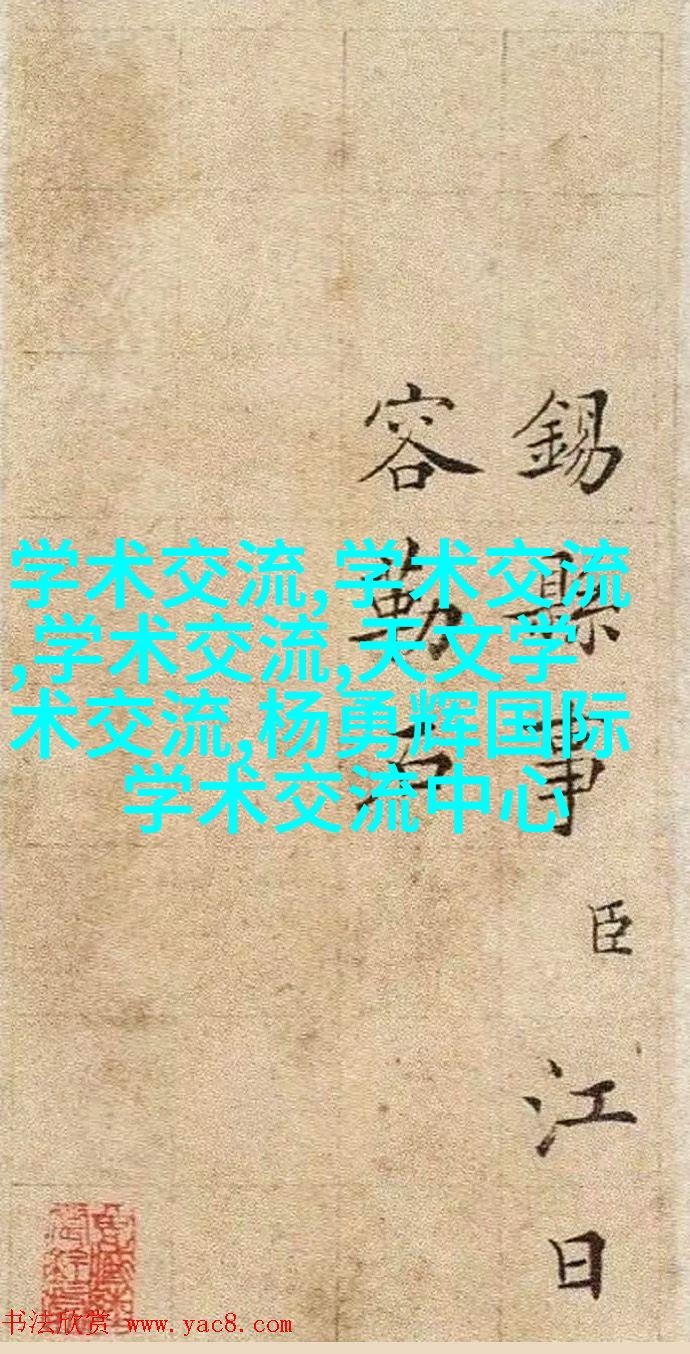 学术交流,学术交流
,学术交流,天文学
术交流,杨勇辉国际
学术交流中心
錫縣事臣江日
容勤
书法欣赏 www.yac8.com